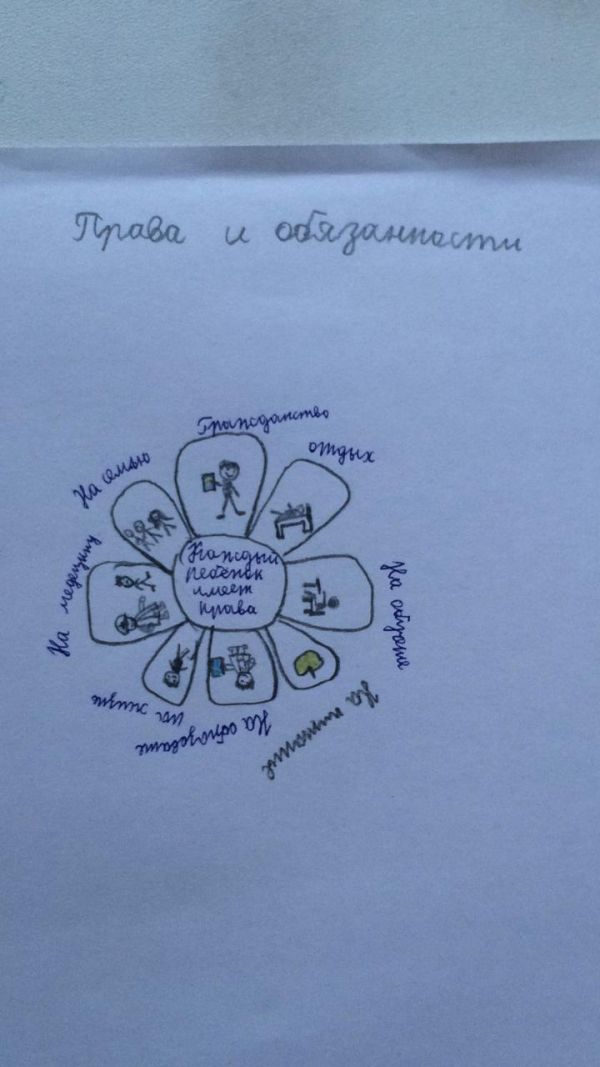 Права и обязанности
Гражданство
отдых
На семью
На медецину
Каждый
ребёнок
имеет
права
На
на жизнь
На образование
На питание